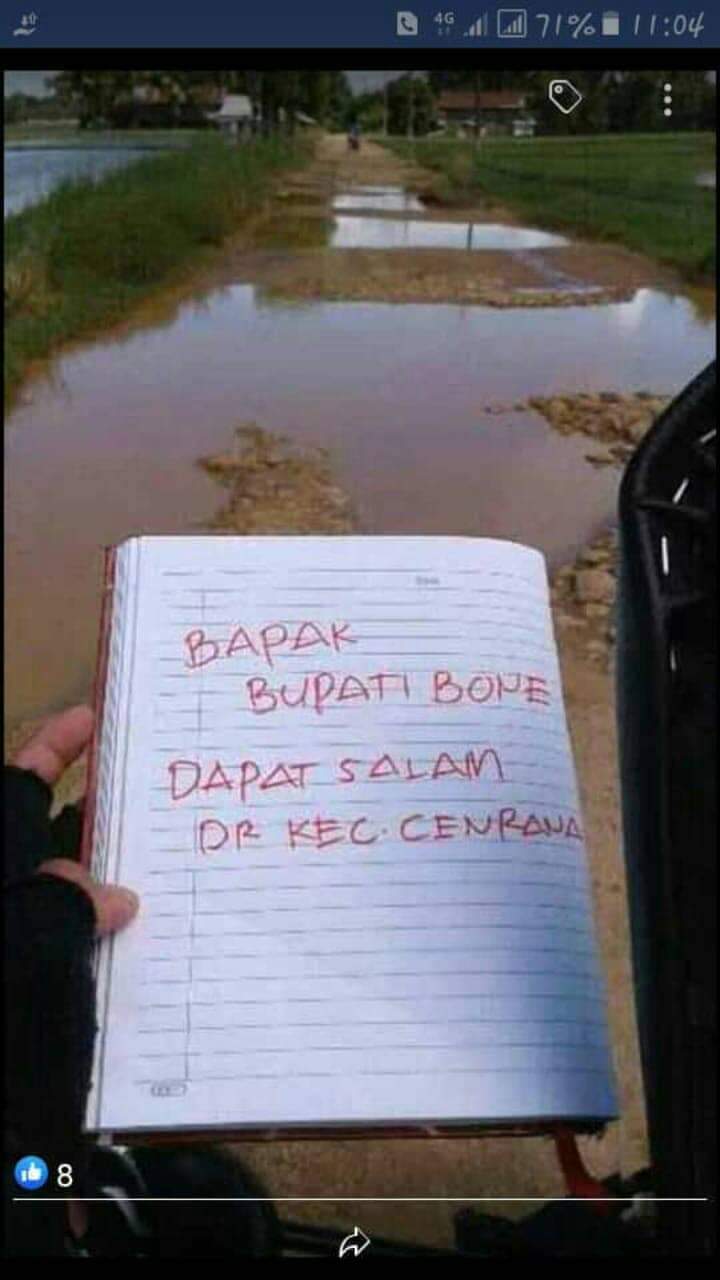 4G
71%
11:04
BAPAK
BUPATI BONE
DAPAT SALAM
DR KEC. CENRANA
8